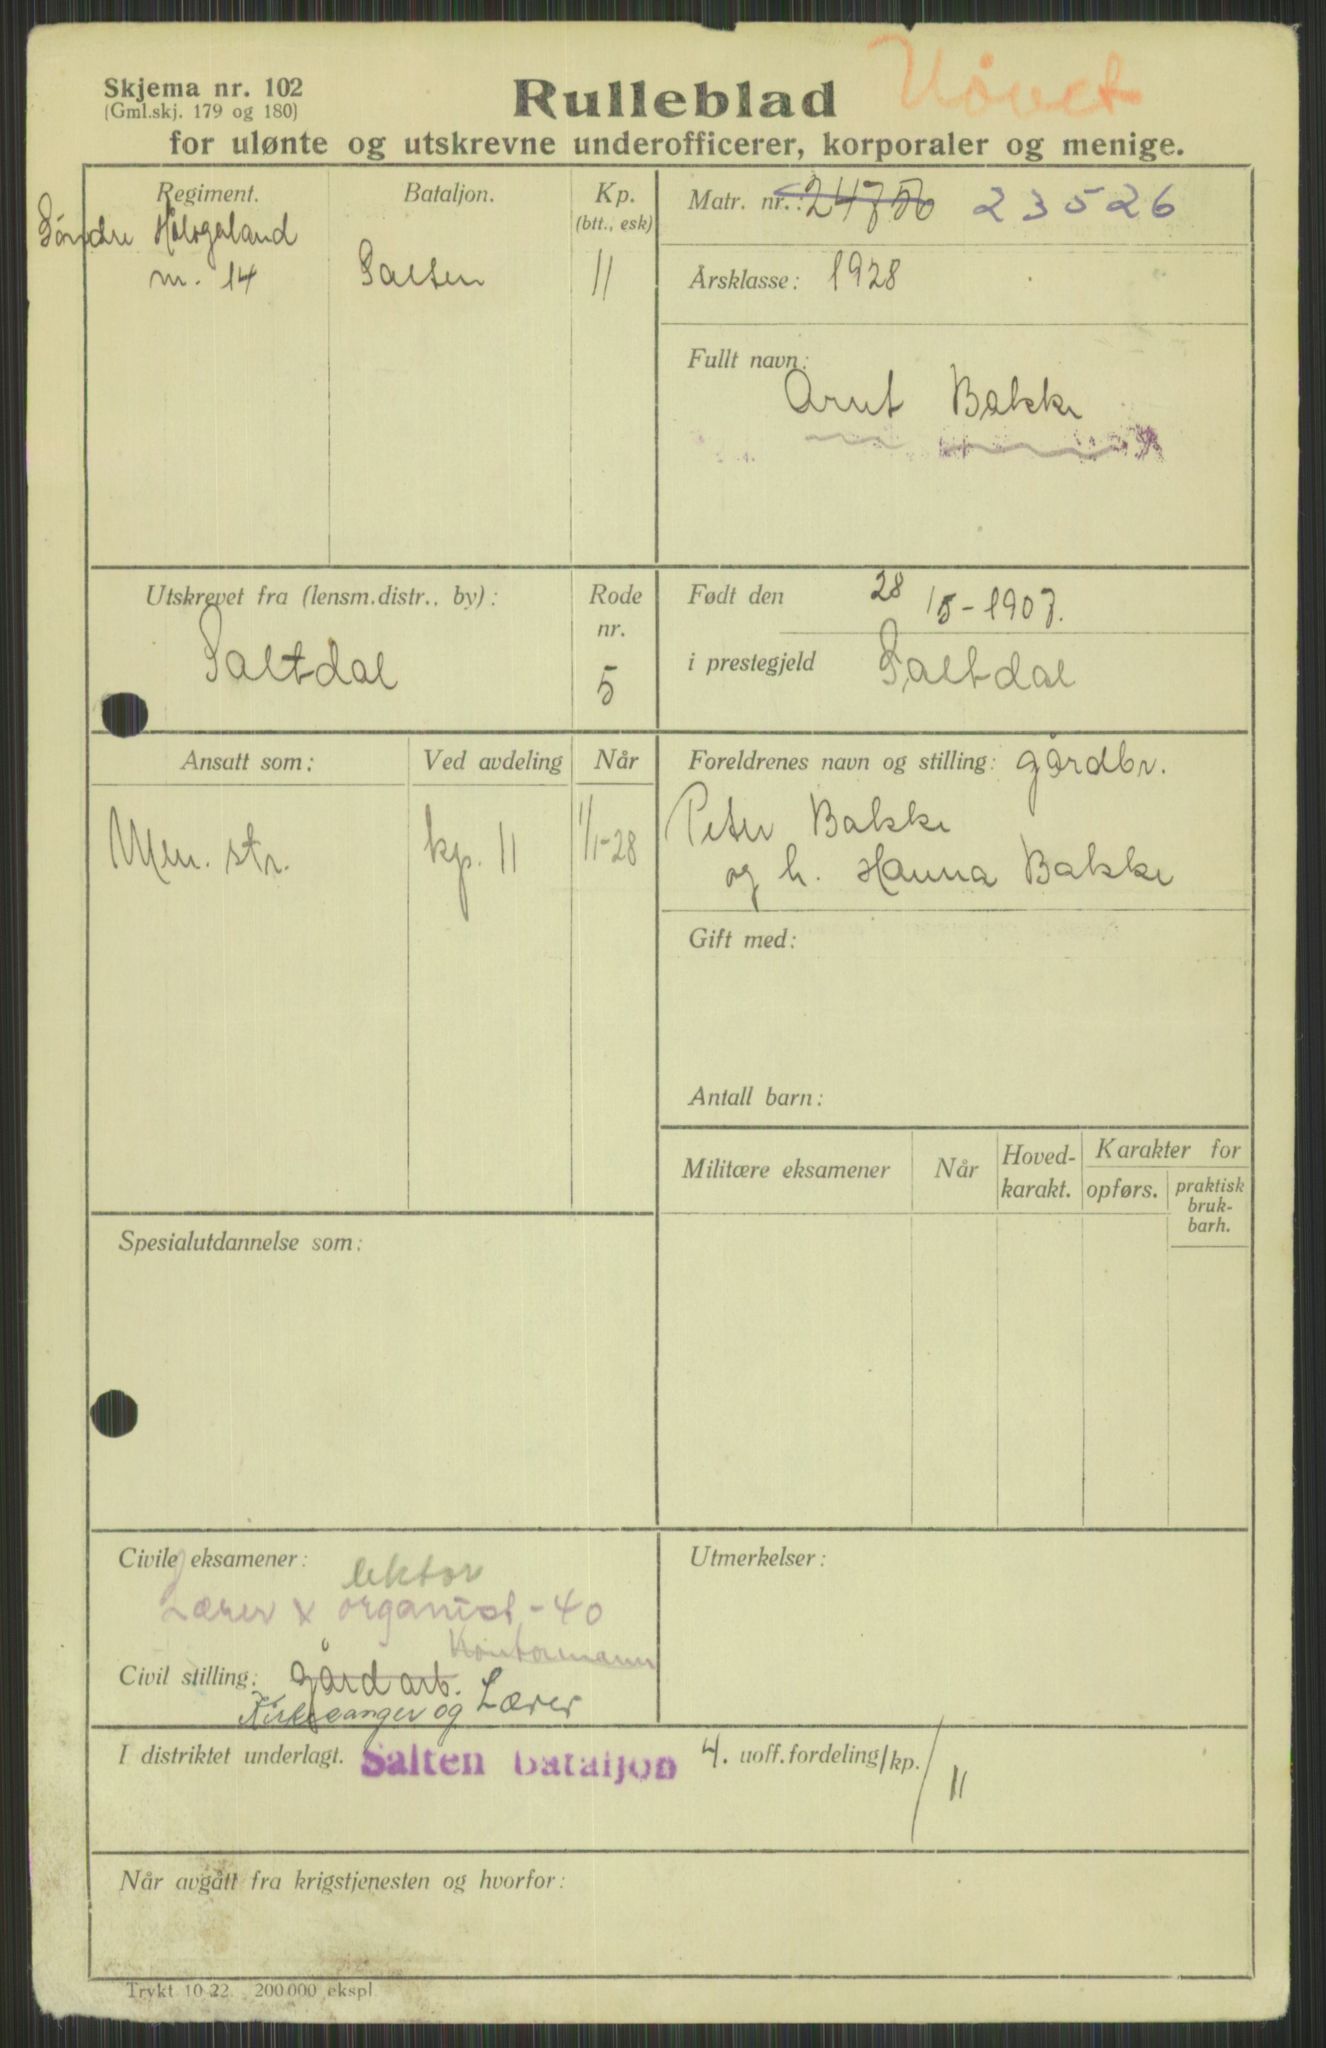 Skjema nr. 102
(Gml.skj. 179 og 180)
Rulleblad
Uövet
for ulønte og utskrevne underofficerer, korporaler og menige.
Regiment.
Bataljon.
Kp.
(btt., esk)
Söndre Hålogaland
nr. 14
Salten
11
Matr. nr.: 23526
Årsklasse: 1928
Fullt navn:
Arnt Bakke
Utskrevet fra (lensm.distr.. by):
Saltdal
Rode
nr.
5
Født den 28/5-1907.
i prestegjeld Saltdal
Ansatt som:
Ved avdeling
Når
Men. str.
kp. 11
1/1-28
Foreldrenes navn og stilling: gårdbr.
Peter Bakke
og h. Hanna Bakke
Gift med:
Antall barn:
Militære eksamener
Når
Hoved-
karakt.
Karakter for
opførs.
praktisk
bruk-
barh.
Spesialutdannelse som:
Civile eksamener: lektor
Lærer & organist -40
Kontormann
Civil stilling: gårdarb.
Kirkesanger og Lærer
Utmerkelser:
I distriktet underlagt. Salten Bataljon 4. uoff.fordeling/kp./11
Når avgått fra krigstjenesten og hvorfor:
Trykt 10-22. 200.000 ekspl.